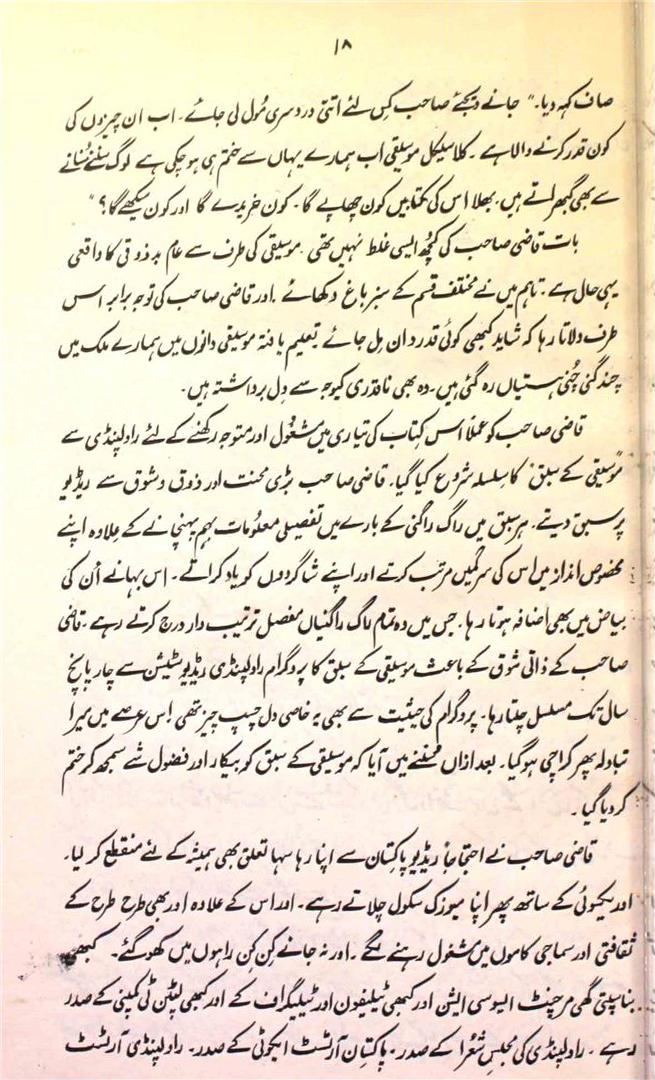 ۱۸
صاف کہہ دیا۔ "جانے دیجئے صاحب کِس لئے اتنی دردسری مُول لی جائے۔ اب ان چیزوں کی
کون قدر کرنے والا ہے۔ کلاسیکل موسیقی اب ہمارے یہاں سے ختم ہی ہو چکی ہے لوگ سننے سُنانے
سے بھی گھبراتے ہیں۔ بھلا اس کی کتابیں کون چھاپے گا۔ کون خریدے گا اور کون سیکھے گا؟"
بات قاضی صاحب کی کُچھ ایسی غلط نہیں تھی۔ موسیقی کی طرف سے عام بدذوقی کا واقعی
یہی حال ہے۔ تاہم میں نے مختلف قسم کے سبز باغ دکھائے۔ اور قاضی صاحب کی توجہ برابر اس
طرف دلاتا رہا کہ شاید کبھی کوئی قدردان مِل جائے۔ تعلیم یافتہ موسیقی دانوں میں ہمارے ملک میں
چند گنی چُنی ہستیاں رہ گئی ہیں۔ وہ بھی ناقدری کیوجہ سے دِل برداشتہ ہیں۔
قاضی صاحب کو عملاً اس کتاب کی تیاری میں مشغُول اور متوجہ رکھنے کے لئے راولپنڈی سے
"موسیقی کے سبق" کا سِلسلہ شروع کیا گیا۔ قاضی صاحب بڑی محنت اور ذوق و شوق سے ریڈیو
پر سبق دیتے۔ ہر سبق میں راگ راگنی کے بارے میں تفصیلی معلُومات بہم پہنچانے کے علاوہ اپنے
مخصوص انداز میں اس کی سرگمیں مرتب کرتے اور اپنے شاگردوں کو یاد کراتے۔ اس بہانے اُن کی
بیاض میں بھی اضافہ ہوتا رہا۔ جس میں وہ تمام راگ راگنیاں مفصل ترتیب وار درج کرتے رہے۔ قاضی
صاحب کے ذاتی شوق کے باعث موسیقی کے سبق کا پروگرام راولپنڈی ریڈیو سٹیشن سے چار پانچ
سال تک مسلسل چلتا رہا۔ پروگرام کی حیثیت سے بھی یہ خاصی دل چسپ چیز تھی۔ اِس عرصے میں میرا
تبادلہ پھر کراچی ہو گیا۔ بعد ازاں سُننے میں آیا کہ موسیقی کے سبق کو بیکار اور فضول شے سمجھ کر ختم
کر دیا گیا۔
قاضی صاحب نے احتجاجاً ریڈیو پاکستان سے اپنا رہا سہا تعلق بھی ہمیشہ کے لئے منقطع کر لیا۔
اور یکسوئی کے ساتھ پھر اپنا میوزک سکول چلاتے رہے۔ اور اس کے علاوہ اور بھی طرح طرح کے
ثقافتی اور سماجی کاموں میں مشغول رہنے لگے۔ اور نہ جانے کِن کِن راہوں میں کھو گئے۔ کبھی
بناسپتی گھی مرچنٹ ایسوسی ایشن اور کبھی ٹیلیفون اور ٹیلیگراف کے اور کبھی لپٹن ٹی کمپنی کے صدر
رہے۔ راولپنڈی کی مجلس شُعرا کے صدر۔ پاکستان آرٹسٹ ایکوٹی کے صدر۔ راولپنڈی آرٹسٹ